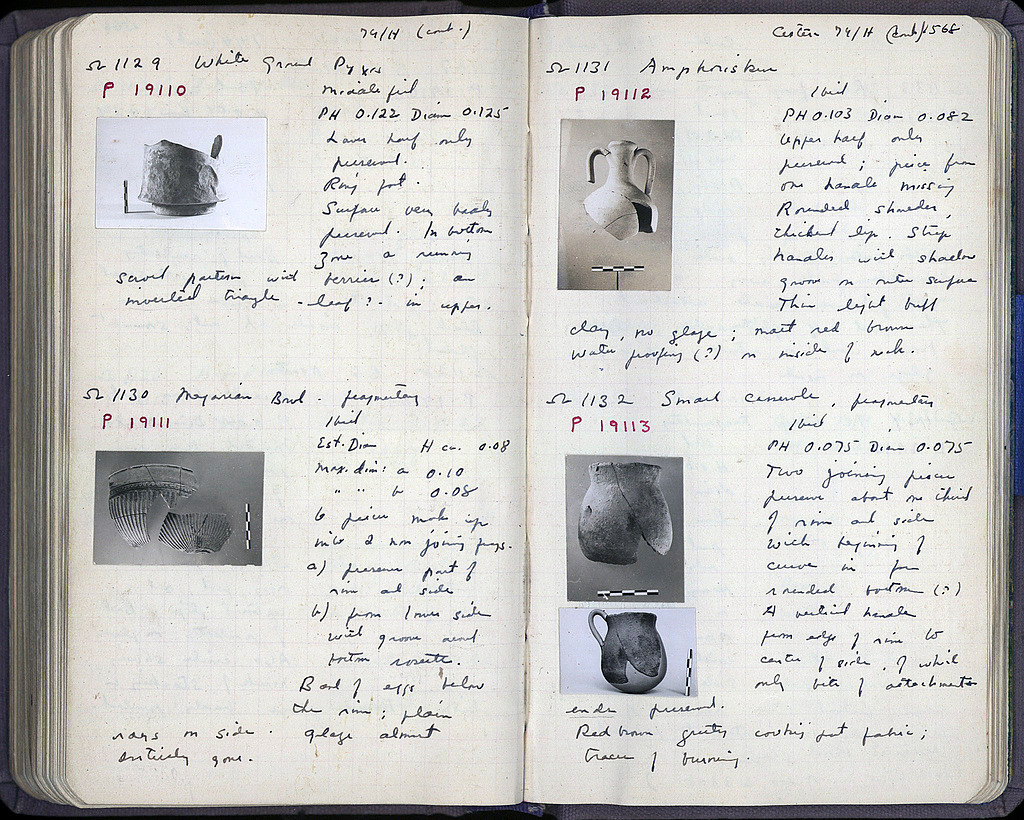 74/H (cont.)
Ω 1129 White Ground Pyxis
P 19110
Middle fill
PH 0.122 Diam 0.125
Lower half only
preserved.
Ring foot.
Surface very badly
preserved. In bottom
zone a running
scroll pattern with berries (?); an
inverted triangle - leaf? - in upper.
Ω 1130 Megarian Bowl - fragmentary
P 19111
Ibid
Est. Diam H ca. 0.08
Max. dim: a 0.10
" " b 0.08
6 pieces make up
into 2 non joining frags.
a) preserves part of
rim and side
b) from lower side
with groove around
bottom rosette.
Band of eggs below
the rim; plain
rays on side. glaze almost
entirely gone.
Cistern 74/H (cont.) 1568
Ω 1131 Amphoriskos
P 19112
Ibid.
PH 0.103 Diam 0.082
Upper half only
preserved; piece from
one handle missing
Rounded shoulder,
thickened lip. Strap
handles with shallow
groove on outer surface
Thin light buff
clay, no glaze; matt red brown
water proofing (?) on inside of neck.
Ω 1132 Small casserole, fragmentary
P 19113
Ibid
PH 0.075 Diam 0.075
Two joining pieces
preserve about one third
of rim and side
with beginning of
curve in for
rounded bottom (?)
A vertical handle
from edge of rim to
center of side, of which
only bits of attachments
ends preserved.
Red brown gritty cooking pot fabric;
traces of burning.